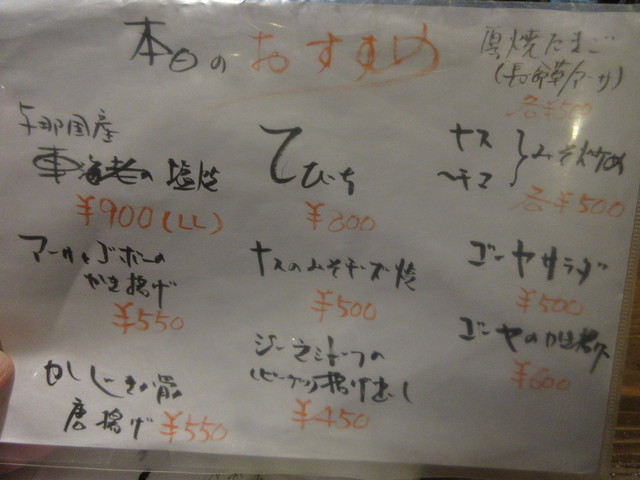 本日の おすすめ
厚焼たまご
(長命草/アーサ)
各¥500
与那国産
車海老の塩焼
¥900(LL)
てびち
¥800
ナス
ヘチマ
}みそ炒め
各¥500
アーサとゴボーの
かき揚げ
¥550
ナスのみそチーズ焼
¥500
ゴーヤサラダ
¥500
ゴーヤのかき揚げ
¥600
ジーマミドーフの
(ピーナツ)揚げ出し
¥450
かじき
唐揚げ ¥550